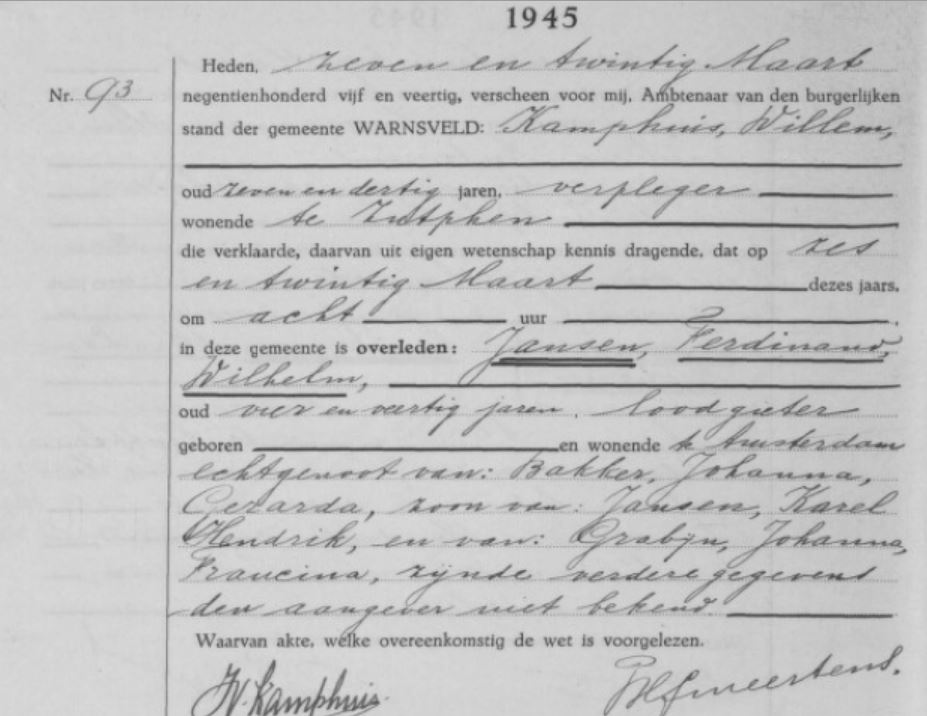 1945
Heden, zeven en twintig Maart
Nr. 93 negentienhonderd vijf en veertig, verscheen voor mij, Ambtenaar van den burgerlijken
stand der gemeente WARNSVELD: Kamphuis, Willem,
oud zeven en dertig jaren, verpleger
wonende te Zutphen
die verklaarde, daarvan uit eigen wetenschap kennis dragende, dat op zes
en twintig Maart dezes jaars,
om acht uur
in deze gemeente is overleden: Jansen, Ferdinand,
Wilhelm,
oud vier en veertig jaren, loodgieter
geboren en wonende te Amsterdam
echtgenoot van: Bakker, Johanna,
Gerarda, zoon van: Jansen, Karel
Hendrik, en van: Grabijn, Johanna,
Francina, zijnde verdere gegevens
den aangever niet bekend
Waarvan akte, welke overeenkomstig de wet is voorgelezen.
W. Kamphuis.